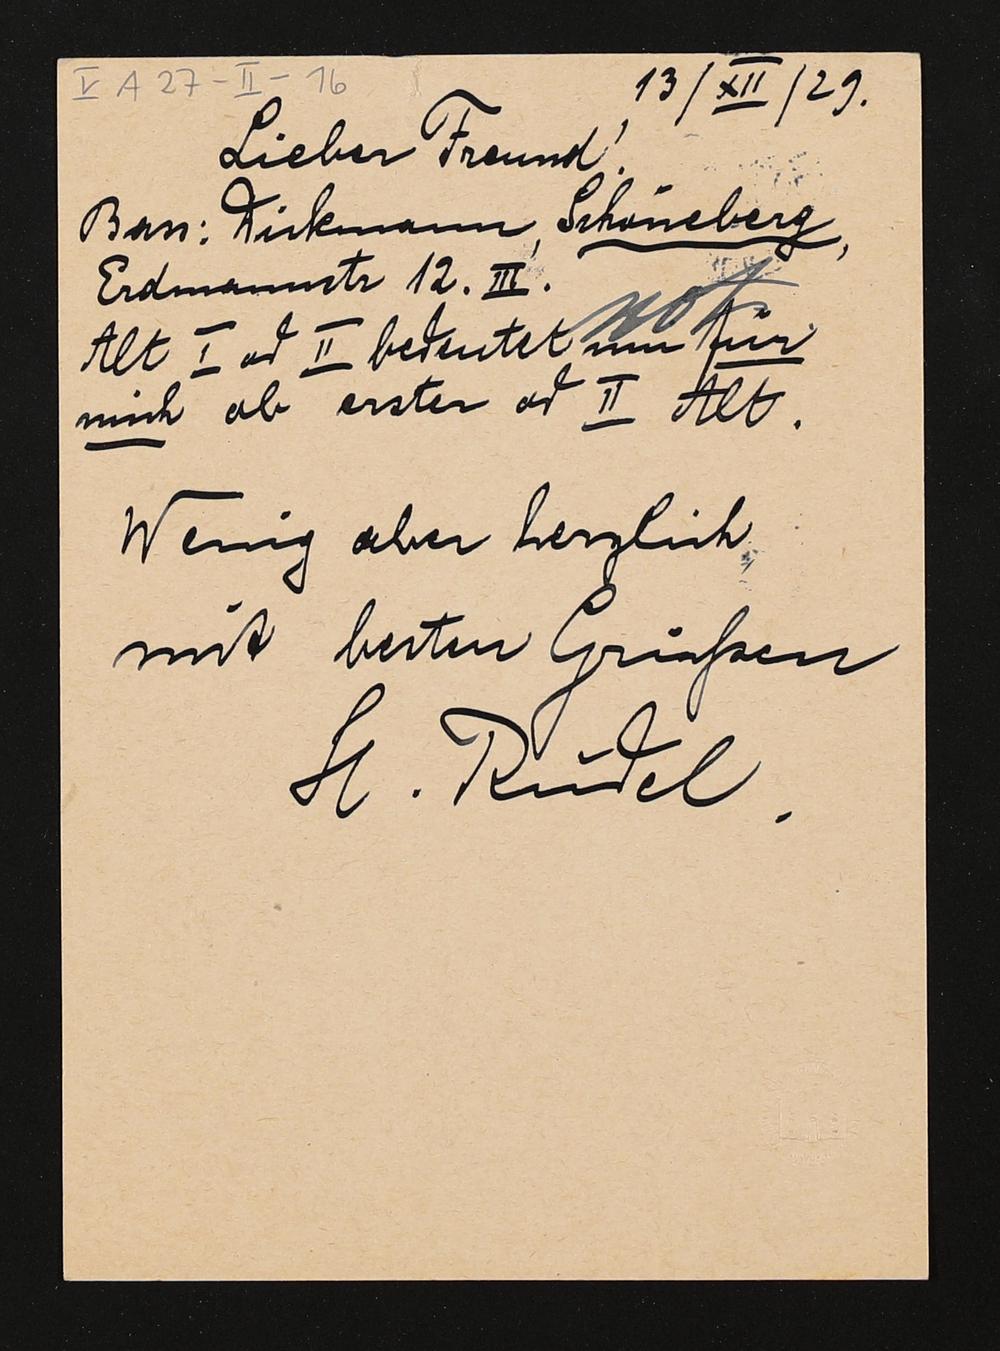 V A 27-II-16
13/XII/29.
Lieber Freund!
Bass: Dickmann, Schöneberg,
Erdmannstr 12. III.
not.
Alt I od II bedeutet nun für
mich ob erster od II Alt.
Wenig aber herzlich
mit besten Grüßen
H. Rüdel.